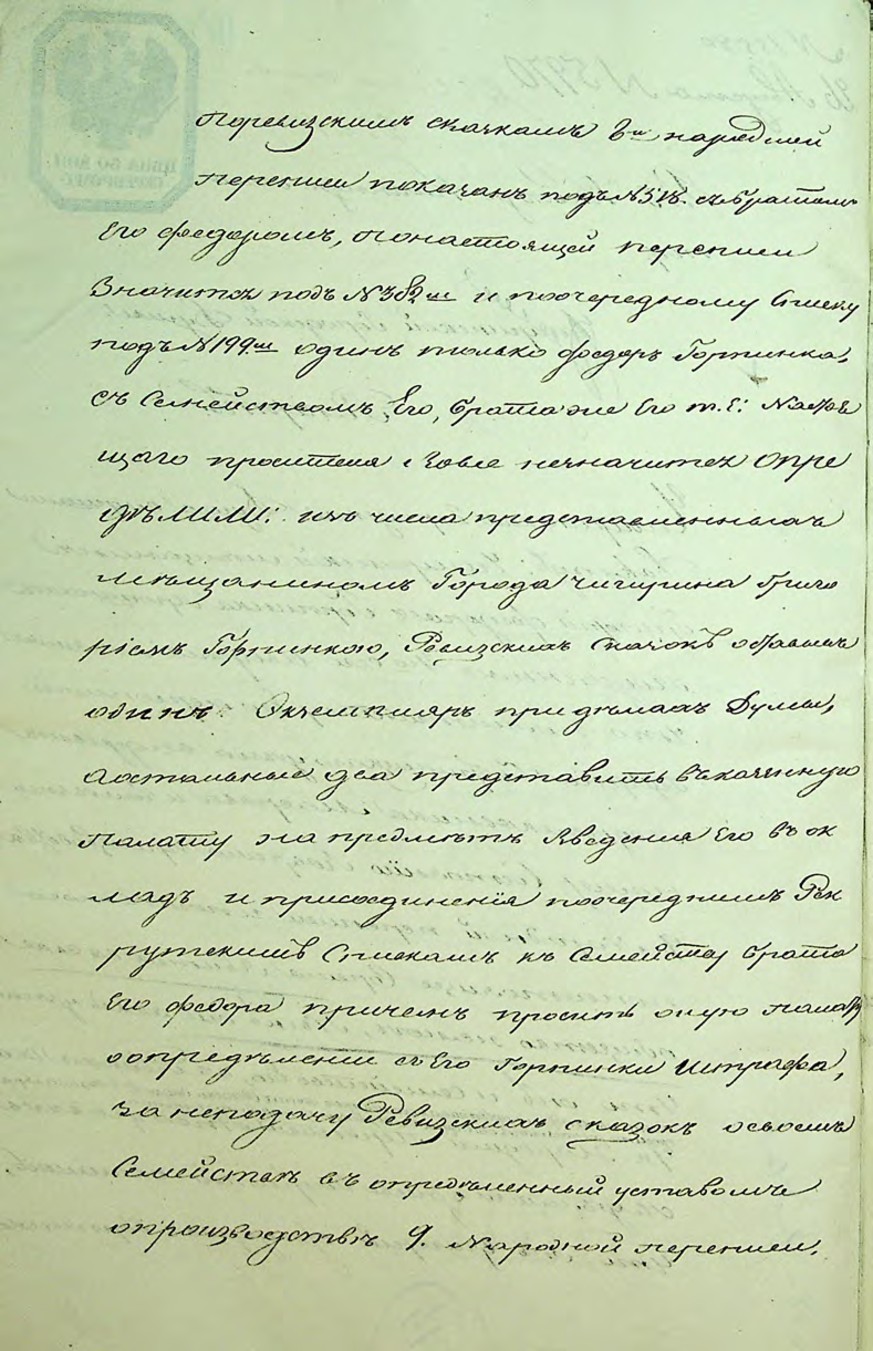 поревизскимъ скачкамъ 8ⁿ народней
переписи показанъ подъ № 518. съ братомъ
Его Федоромъ, понастоящей переписи
Значитсѧ подъ № 382ᵐ и поочередному Списку
подъ № 199ᵐ одинъ только Федоръ Горпинка,
съ Семействомъ Его, брата же Его т. Е: Настоѧ
щаго просителя вовсе незначитсѧ Опре
дѣлили: изъ числа представленныхъ
мѣщаниномъ Города Чигирина Григо
ріемъ Горпинкою, Ревизскихъ Скачокъ
одинъ Экземпляръ при дѣлахъ Думы,
аостальные два представить въказенную
палату на предметъ введения Его въ ок
ладъ и присоединенія поочереднимъ Рек
рутскимъ Спискамъ къ Семейству брата
Его Федора причемъ просить оную палат
оопредѣлении съ Его Горпинки Штрафа,
за неподачу Ревизскихъ сказокъ освоемъ
Семействѣ въ опредѣленный уставомъ
опроизводствѣ 9. Народной переписи,
ЦѢНА 60 КОП.